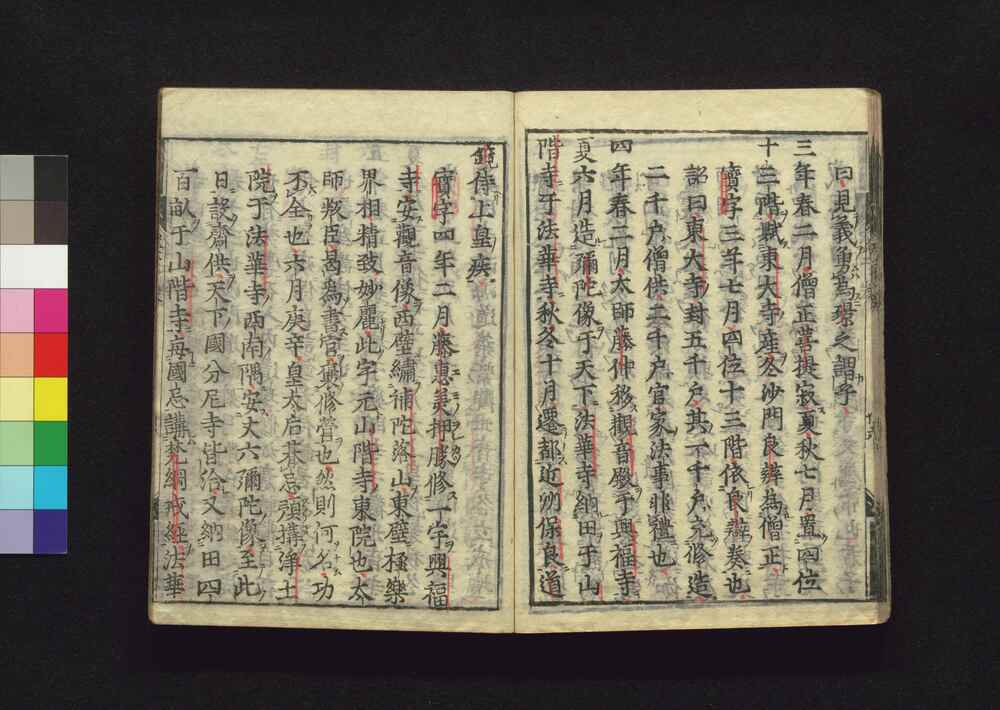 曰見義勇為璟之謂乎
三年春二月僧正菩提寂夏秋七月置四位
十三階賦東大寺産冬沙門良辨為僧正
寶字三年七月四位十三階依良辨奏也
詔曰東大寺封五千戸其一千戸充修造
二千戸僧供二千戸官家法事非禮也
四年春二月太師藤仲移觀音殿于興福寺
夏六月造彌陀像于天下法華寺納田于山
階寺于法華寺秋冬十月遷都近州保良道
鏡侍上皇疾
寶字四年二月藤惠美押勝修一字興福
寺安觀音像西壁繡補陀落山東壁極樂
界相精致妙麗此字元山階寺東院也太
師叛臣曷為書官褒修營也然則何名功
不全也六月庚辛皇太后葬忌預搆淨土
院于法華寺西南隅安丈六彌陀像至此
日設齋供天下國分尼寺皆給又納田四
百畝于山階寺毎國忌講梵網戒經法華